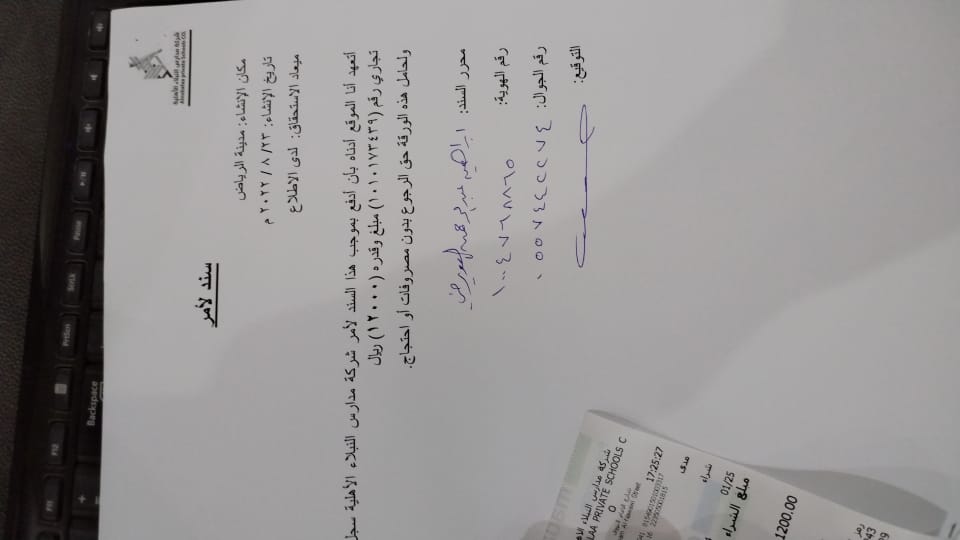 شركة مدارس النبلاء الأهلية
Alnobalaa private Schools CO.
سند لأمر
مكان الإنشاء: مدينة الرياض
تاريخ الإنشاء: ٢٣ / ٨ / ٢٠٢٢ م
ميعاد الاستحقاق: لدى الاطلاع
أتعهد أنا الموقع أدناه بأن أدفع بموجب هذا السند لأمر شركة مدارس النبلاء الأهلية سجل
تجاري رقم (١٠١٠١٧٣٤٣٩) مبلغ وقدره (١٢٠٠٠) ريال
ولحامل هذه الورقة حق الرجوع بدون مصروفات أو احتجاج.
محرر السند:
رقم الهوية: ١٠٠٤٧٦٨٨٦٥
رقم الجوال:
التوقيع:
شركة مدارس النبلاء
LAA PRIVATE SCHOOLS C
17:25:27
مدى
شراء
01/25
مبلغ الشراء
1200.00
Backspace
PrtScn
ScrLk
Pause
F12
F11